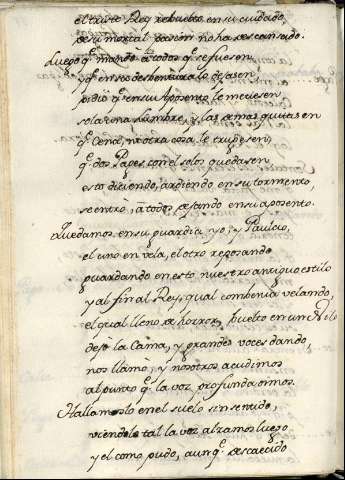 el triste Rey rebuelto en su cuidado,
de su mortal pasion no ha descansado.
Luego q̃ mandò à todos q̃ se fuesen,
y q̃ en su desbentura lo dejasen
pidiò q̃ en su Aposento le metiesen
sola una lumbre, y las demas quitasen
q̃ Cena, ni otra cosa le trugesen,
q̃ dos Pages con el solos quedasen
esto diciendo, ardiendo en su tormento,
se entrò, à todos echando en su aposento.
Quedamos en su guardia yo, y Paulcio,
el uno en vela, el otro reposando
guardando en esto nuestro antiguo estilo
y al fin al Rey, qual combenia velando,
el qual lleno de horror, buelto en un Nilo
dejò la Cama, y grandes voces dando,
nos llamò, y nosotros acudimos
al punto q̃ la voz profunda oimos.
Hallamoslo en el suelo sin sentido,
viendole tal la voz alzamos luego
y el como pudo, aunq̃ descaecido